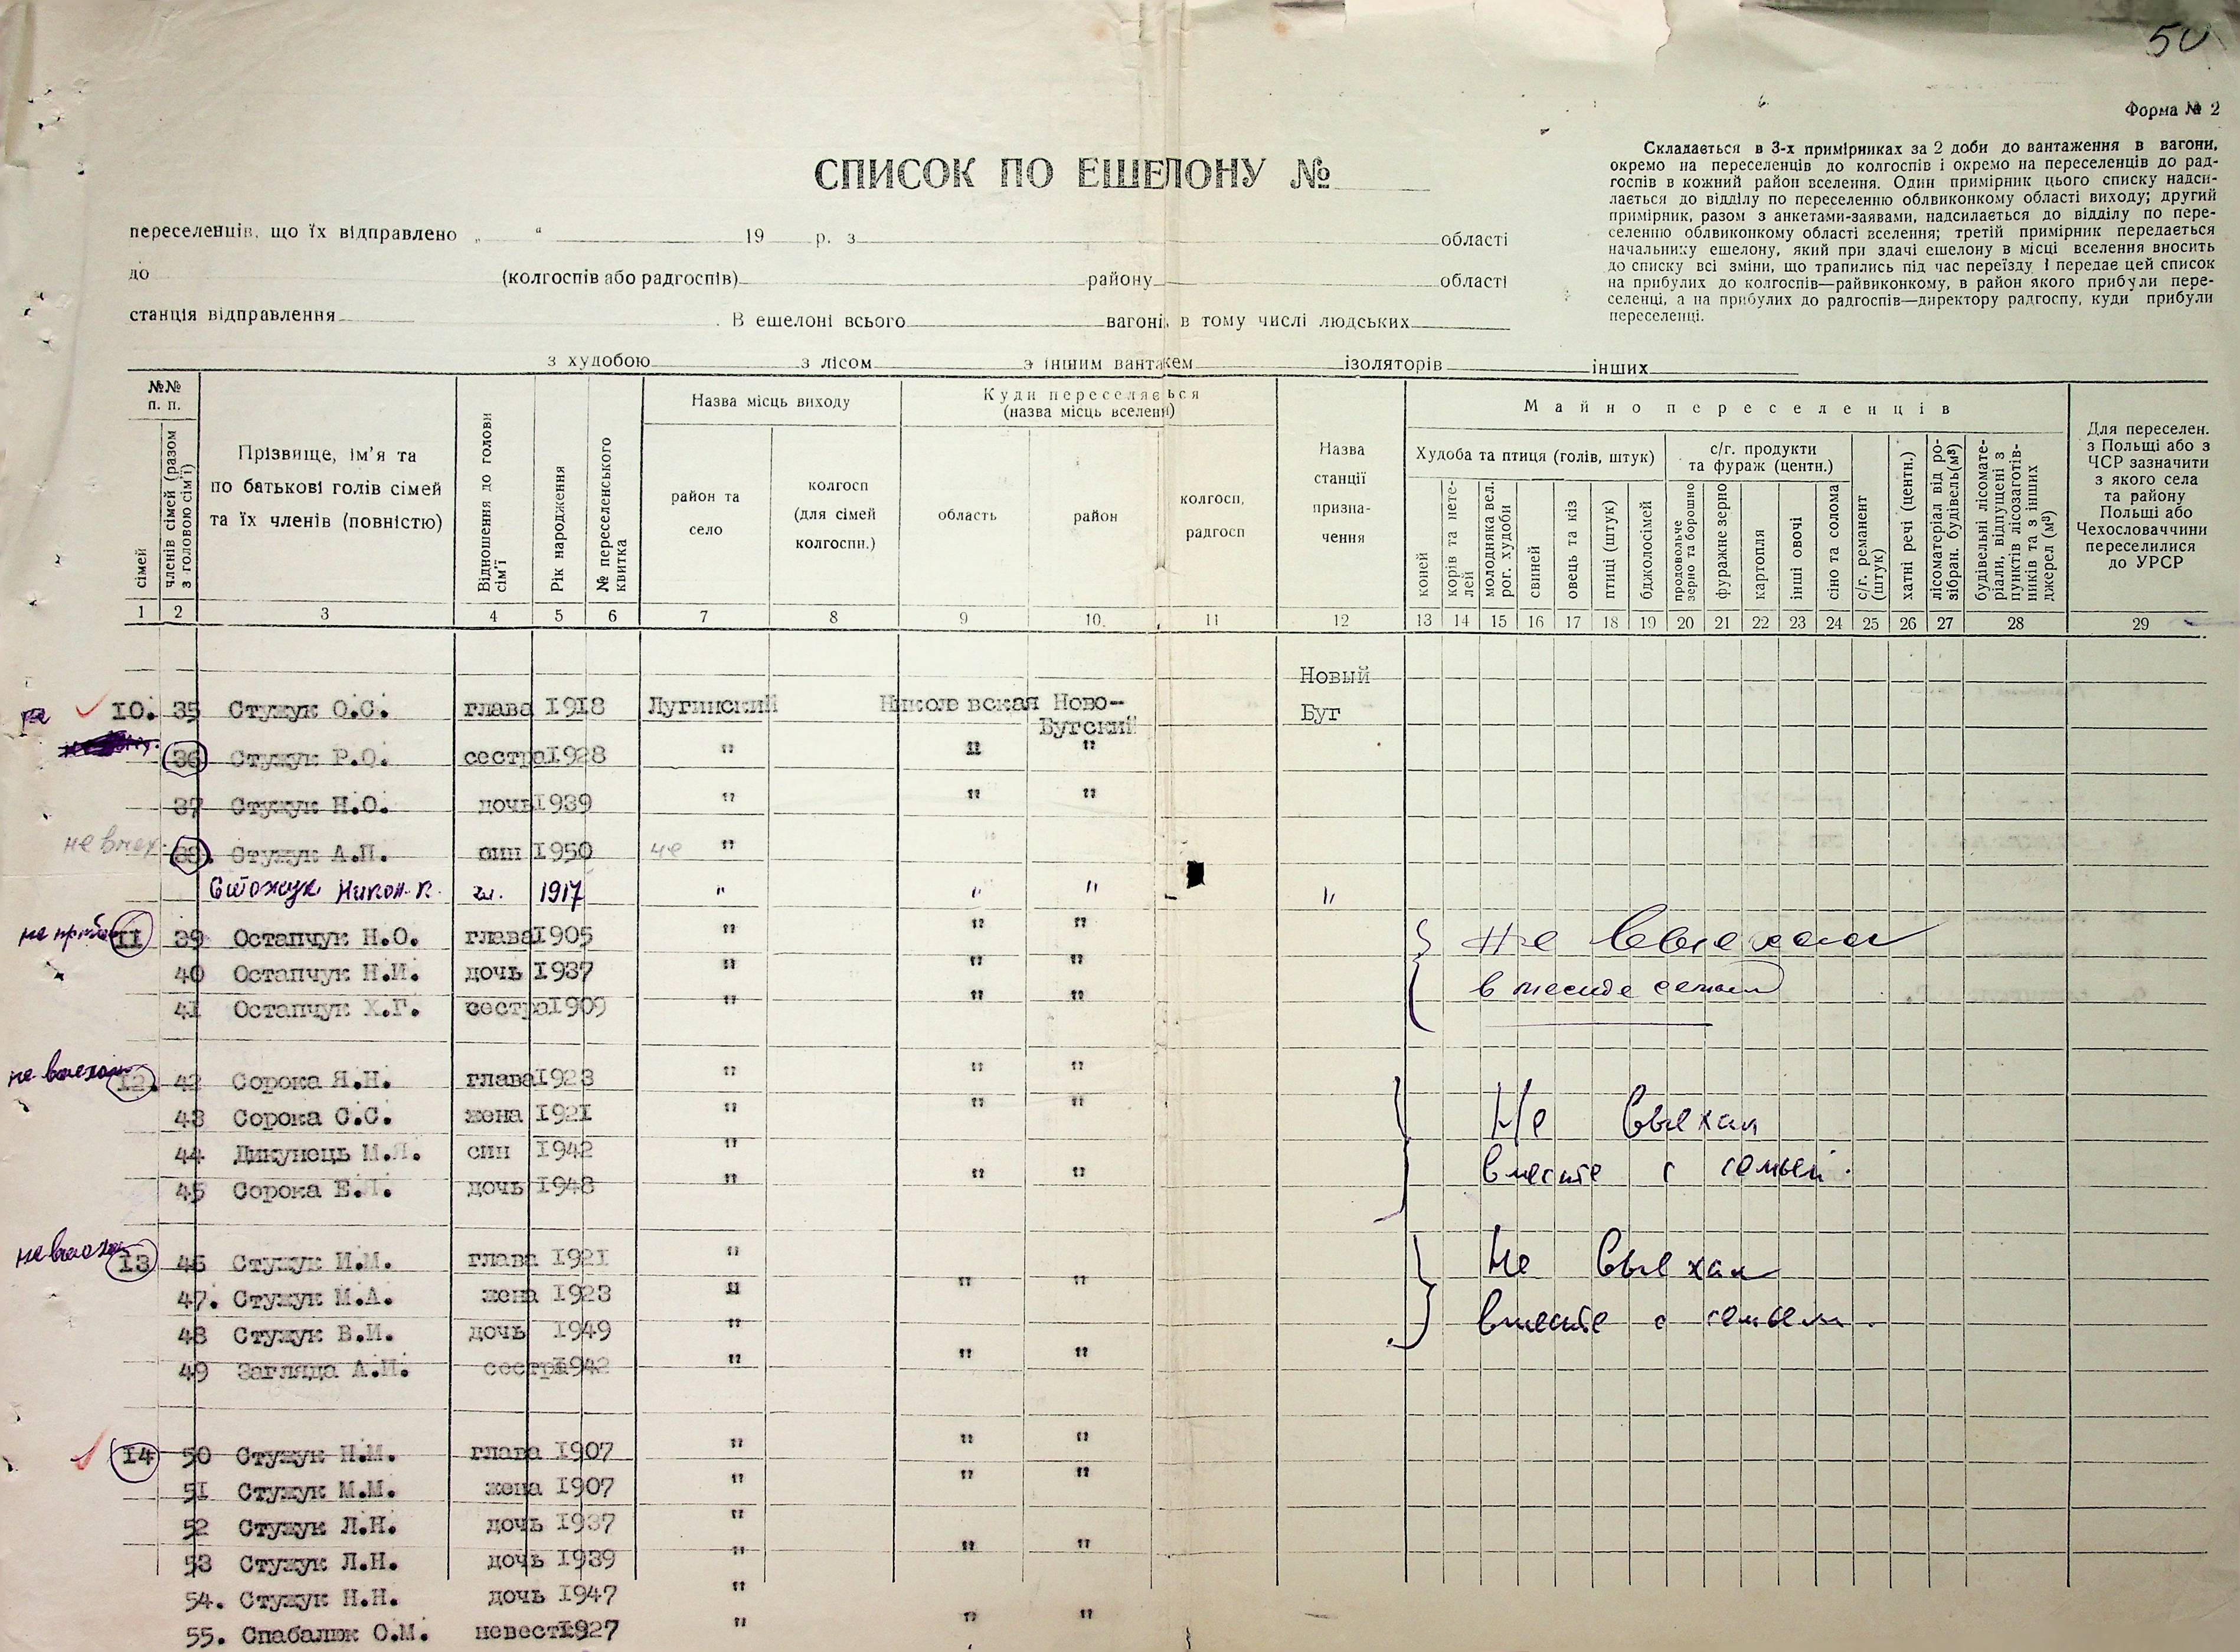 50
Форма № 2
СПИСОК ПО ЕШЕЛОНУ №
Складається в 3-х примірниках за 2 доби до вантаження в вагони,
окремо на переселенців до колгоспів і окремо на переселенців до рад-
госпів в кожний район вселення. Один примірник цього списку надси-
лається до відділу по переселенню облвиконкому області виходу; другий
примірник, разом з анкетами-заявами, надсилається до відділу по пере-
селенню облвиконкому області вселення; третій примірник передається
начальнику ешелону, який при здачі ешелону в місці вселення вносить
до списку всі зміни, що трапились під час переїзду і передає цей список
на прибулих до колгоспів—райвиконкому, в район якого прибули пере-
селенці, а на прибулих до радгоспів—директору радгоспу, куди прибули
переселенці.
переселенців, що їх відправлено „ “ 19 р. з області
до (колгоспів або радгоспів) району області
станція відправлення . В ешелоні всього вагонів, в тому числі людських
з худобою з лісом з іншим вантажем ізоляторів інших
№№ п. п.
сімей
членів сімей (разом з головою сім'ї)
Прізвище, ім'я та по батькові голів сімей та їх членів (повністю)
Відношення до голови сім'ї
Рік народження
№ переселенського квитка
Назва місць виходу
район та село
колгосп (для сімей колгоспн.)
Куди переселяється (назва місць вселенн)
область
район
колгосп, радгосп
Назва станції призна-чення
Майно переселенців
Худоба та птиця (голів, штук)
коней
корів та нете-лей
молодняка вел. рог. худоби
свиней
овець та кіз
птиці (штук)
бджолосімей
с/г. продукти та фураж (центн.)
продовольче зерно та борошно
фуражне зерно
картопля
інші овочі
сіно та солома
с/г. реманент (штук)
хатні речі (центн.)
лісоматеріал від ро-зібран. будівель(м³)
будівельні лісомате-ріали, відпущені з пунктів лісозаготів-ників та з інших джерел (м³)
Для переселен. з Польщі або з ЧСР зазначити з якого села та району Польщі або Чехословаччини переселилися до УРСР
1 2 3 4 5 6 7 8 9 10 11 12 13 14 15 16 17 18 19 20 21 22 23 24 25 26 27 28 29
10. 35 Стужук О.С. глава 1918 Лугинский Николевская Ново-Бугский Новый Буг
36 Стужук Р.О. сестра 1928 " " "
37 Стужук Н.О. дочь 1939 " " "
не выех. 38. Стужук А.П. син 1950 не "
Стожук Никон. К. гл. 1917 " " " "
11 39 Остапчук Н.О. глава 1905 " " " Не выехала
40 Остапчук Н.И. дочь 1937 " " "
41 Остапчук Х.Г. сестра 1909 " " "
не выехал 12. 42 Сорока Я.Н. глава 1923 " " "
43 Сорока С.С. жена 1921 " " " Не выехал
44 Дикунець М.Я. син 1942 " вместе с семьей.
45 Сорока Е.Я. дочь 1948 " " "
не выехал 13 46 Стужук И.М. глава 1921 " Не выехал
47. Стужук М.А. жена 1923 " " "
48 Стужук В.И. дочь 1949 " вместе с семьей.
49 Загляда А.И. сестра 1942 " " "
14 50 Стужук Н.М. глава 1907 " " "
51 Стужук М.М. жена 1907 " " "
52 Стужук Л.Н. дочь 1937 "
53 Стужук Л.Н. дочь 1939 " " "
54. Стужук Н.Н. дочь 1947 "
55. Спабалюк О.М. невестка 1927 " " "